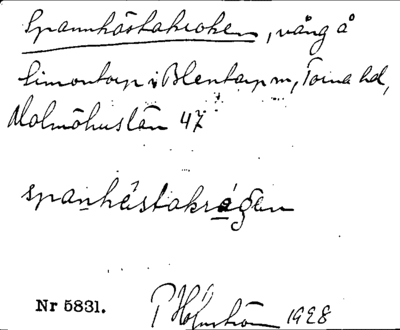 Spannhästakroken, vång å
Simontorp i Blentarp m, Torna hd,
Malmöhus län 47
spanhästakrågen
Nr 5831.
P Holmström 1928